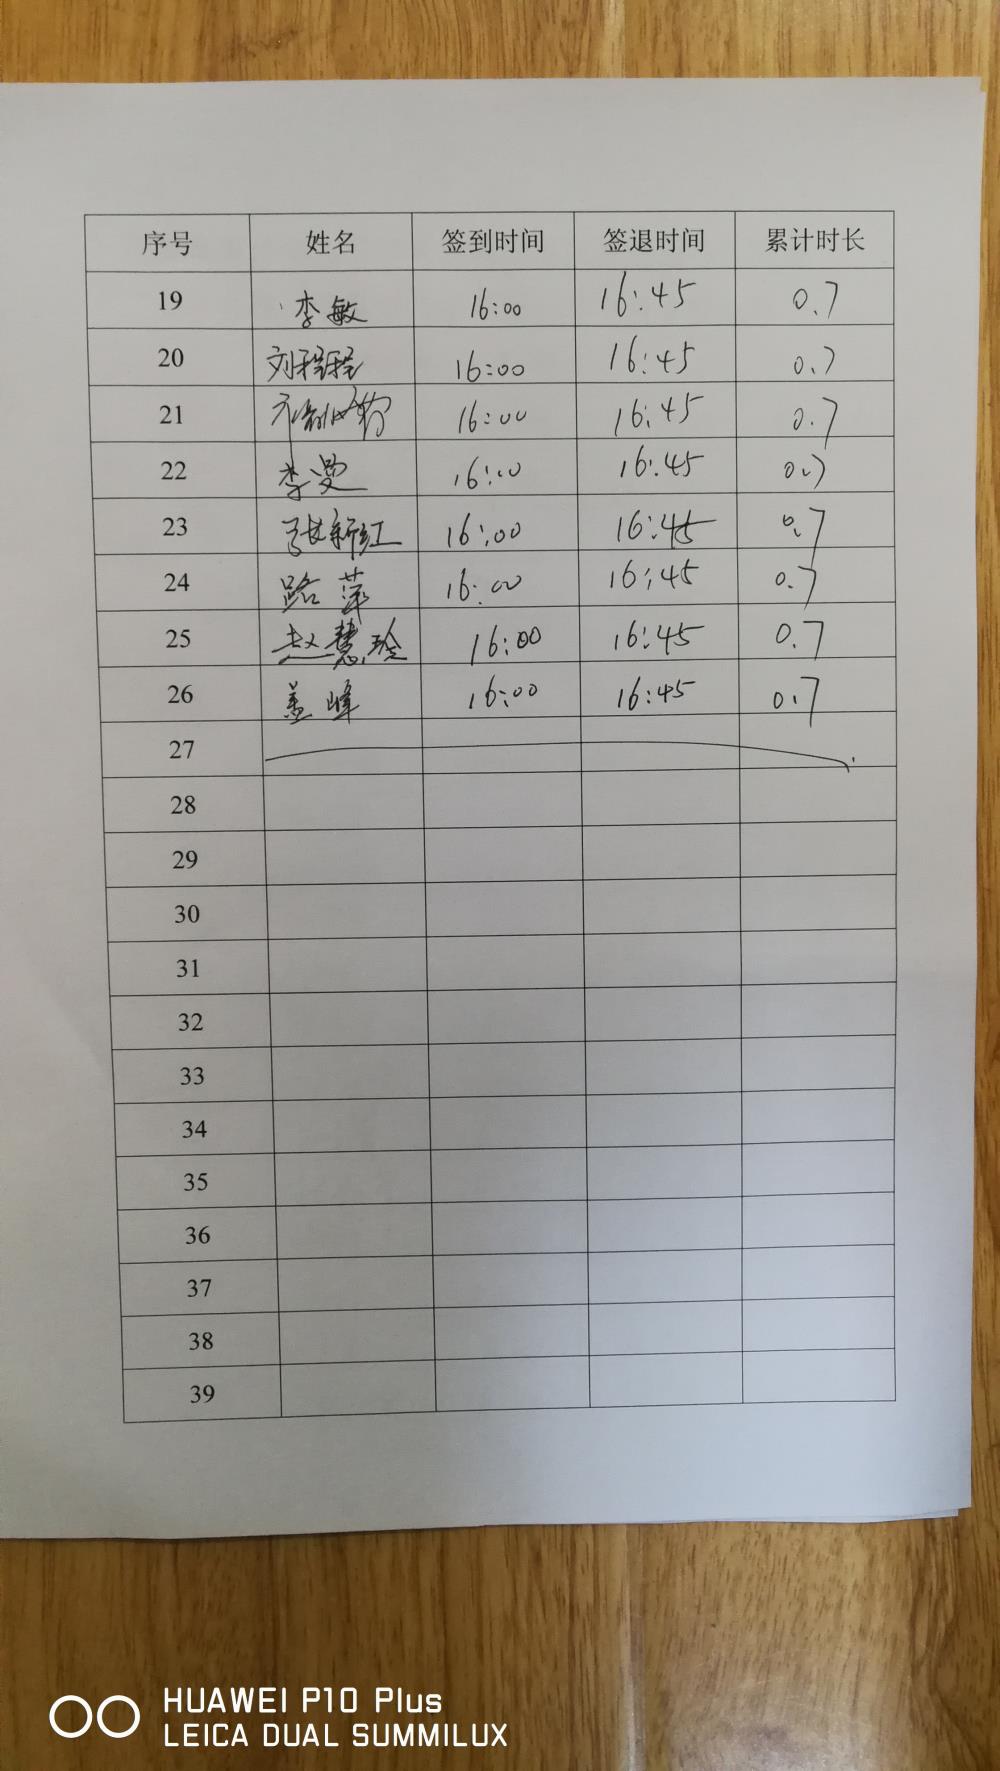 序号 姓名 签到时间 签退时间 累计时长
19 李敏 16:00 16:45 0.7
20 刘程程 16:00 16:45 0.7
21 16:00 16:45 0.7
22 李曼 16:00 16:45 0.7
23 张新红 16:00 16:45 0.7
24 路萍 16:00 16:45 0.7
25 赵慧玲 16:00 16:45 0.7
26 盖峰 16:00 16:45 0.7
27
28
29
30
31
32
33
34
35
36
37
38
39
HUAWEI P10 Plus
LEICA DUAL SUMMILUX